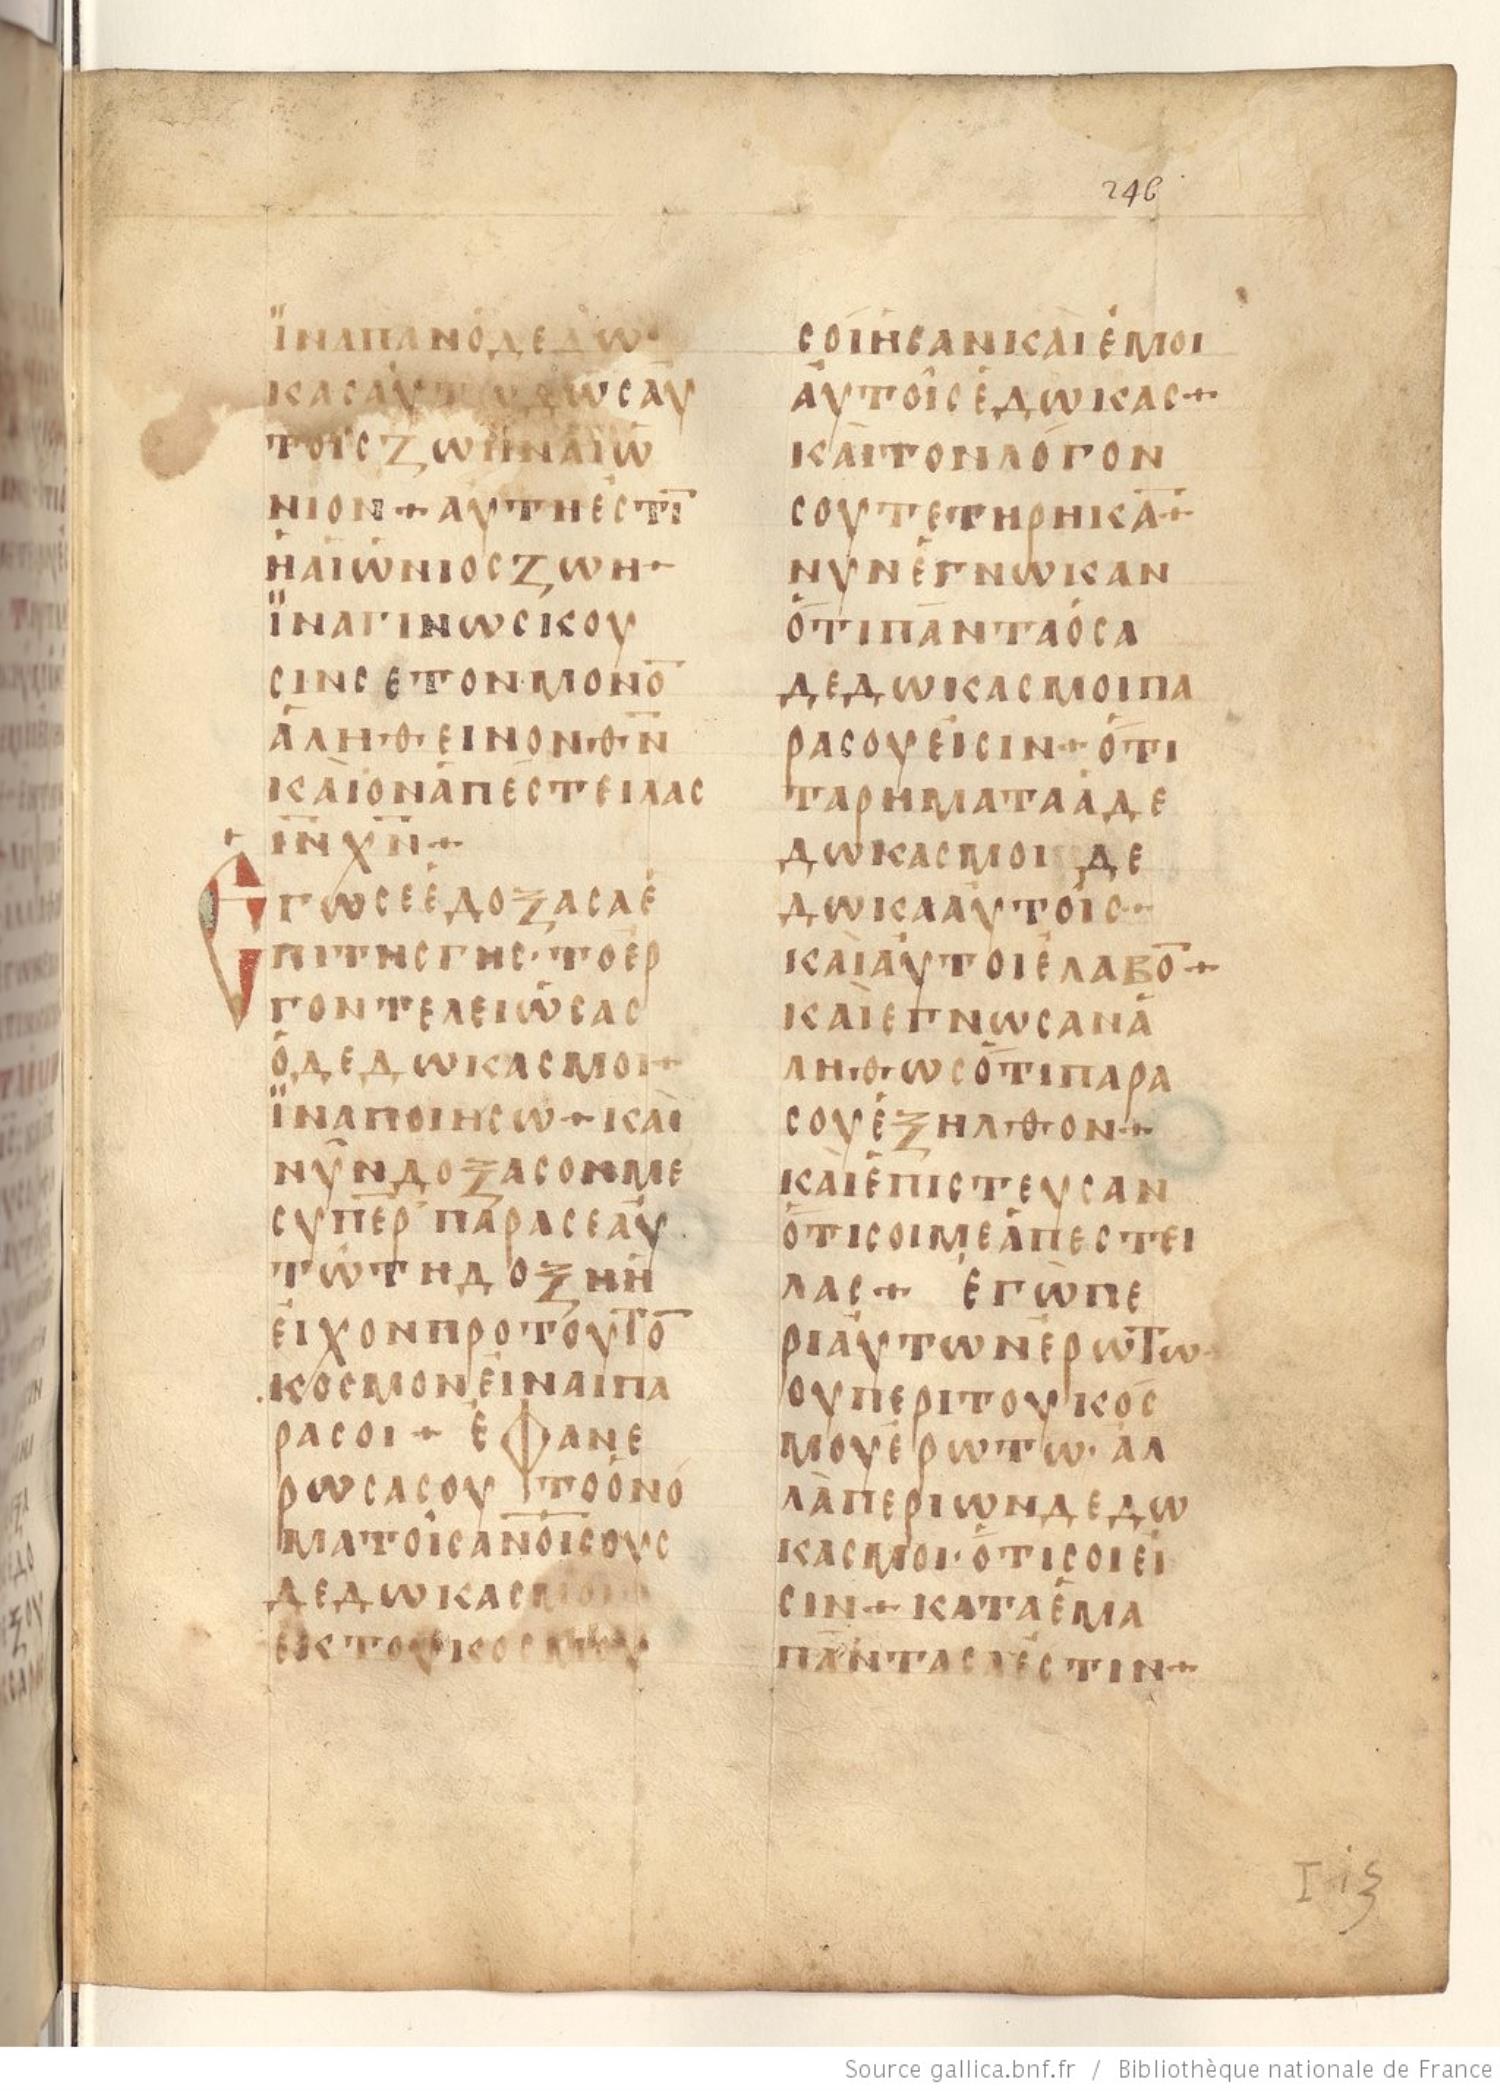 246
ἵΝΑΠΑΝΟΔΕΔΩ
ΚΑСΑΥΤΩΔΩСΑΥ
ΤΟΙСΖΩΗΝΑΙΩ̅
ΝΙΟΝ+ΑΥΤΗΕСΤΙ̅
ΗΑΙΩΝΙΟСΖΩΗ+
ΪΝΑΓΙΝΩСΚΟΥ
СΙΝСΕΤΟΝΜΟΝΟ̅
ΑΛΗΘΕΙΝΟΝΘ̅Ν̅
ΚΑΙΟΝΑΠΕСΤΕΙΛΑС
Ι̅Ν̅Χ̅Ν̅+
ΕΓΩСΕΕΔΟΞΑСΑΕ
ΠΙΤΗСΓΗС·ΤΟΕΡ
ΓΟΝΤΕΛΕΙΩСΑС
ΟΔΕΔΩΚΑСΜΟΙ+
ΪΝΑΠΟΙΗСΩ+ΚΑΙ
ΝΥΝΔΟΞΑСΟΝΜΕ
СΥΠΕΡ ΠΑΡΑСΕΑΥ
ΤΩΤΗΔΟΞΗΗ
ΕΙΧΟΝΠΡΟΤΟΥΤΟ̅
ΚΟСΜΟΝΕΙΝΑΙΠΑ
ΡΑСΟΙ+ ΕΦΑΝΕ
ΡΩСΑСΟΥ ΤΟΟΝΟ
ΜΑΤΟΙСΑΝ̅Ο̅Ι̅СΟΥС
ΔΕΔΩΚΑСΜΟΙ
ΕΚΤΟΥΚΟСΜΟΥ
СΟΙΗСΑΝΚΑΙΕΜΟΙ
ΑΥΤΟΙСΕΔΩΚΑС+
ΚΑΙΤΟΝΛΟΓΟΝ
СΟΥΤΕΤΗΡΗΚΑ̅+
ΝΥΝΕΓΝΩΚΑΝ
ΟΤΙΠΑΝΤΑΟСΑ
ΔΕΔΩΚΑСΜΟΙΠΑ
ΡΑСΟΥΕΙСΙΝ+ΟΤΙ
ΤΑΡΗΜΑΤΑΑΔΕ
ΔΩΚΑСΜΟΙ ΔΕ
ΔΩΚΑΑΥΤΟΙС+
ΚΑΙΑΥΤΟΙΕΛΑΒΟ̅+
ΚΑΙΕΓΝΩСΑΝΑ
ΛΗΘΩСΟΤΙΠΑΡΑ
СΟΥΕΞΗΛΘΟΝ+
ΚΑΙΕΠΙСΤΕΥСΑΝ
ΟΤΙСΟΙΜΕΑΠΕСΤΕΙ
ΛΑС+ ΕΓΩΠΕ
ΡΙΑΥΤΩΝΕΡΩΤΩ
ΟΥΠΕΡΙΤΟΥΚΟС
ΜΟΥΕΡΩΤΩ·ΑΛ
ΛΑΠΕΡΙΩΝΔΕΔΩ
ΚΑСΜΟΙ·ΟΤΙСΟΙΕΙ
СΙΝ+ΚΑΤΑΕΜΑ
ΠΑΝΤΑСΑΕСΤΙΝ+
Source gallica.bnf.fr / Bibliothèque nationale de France